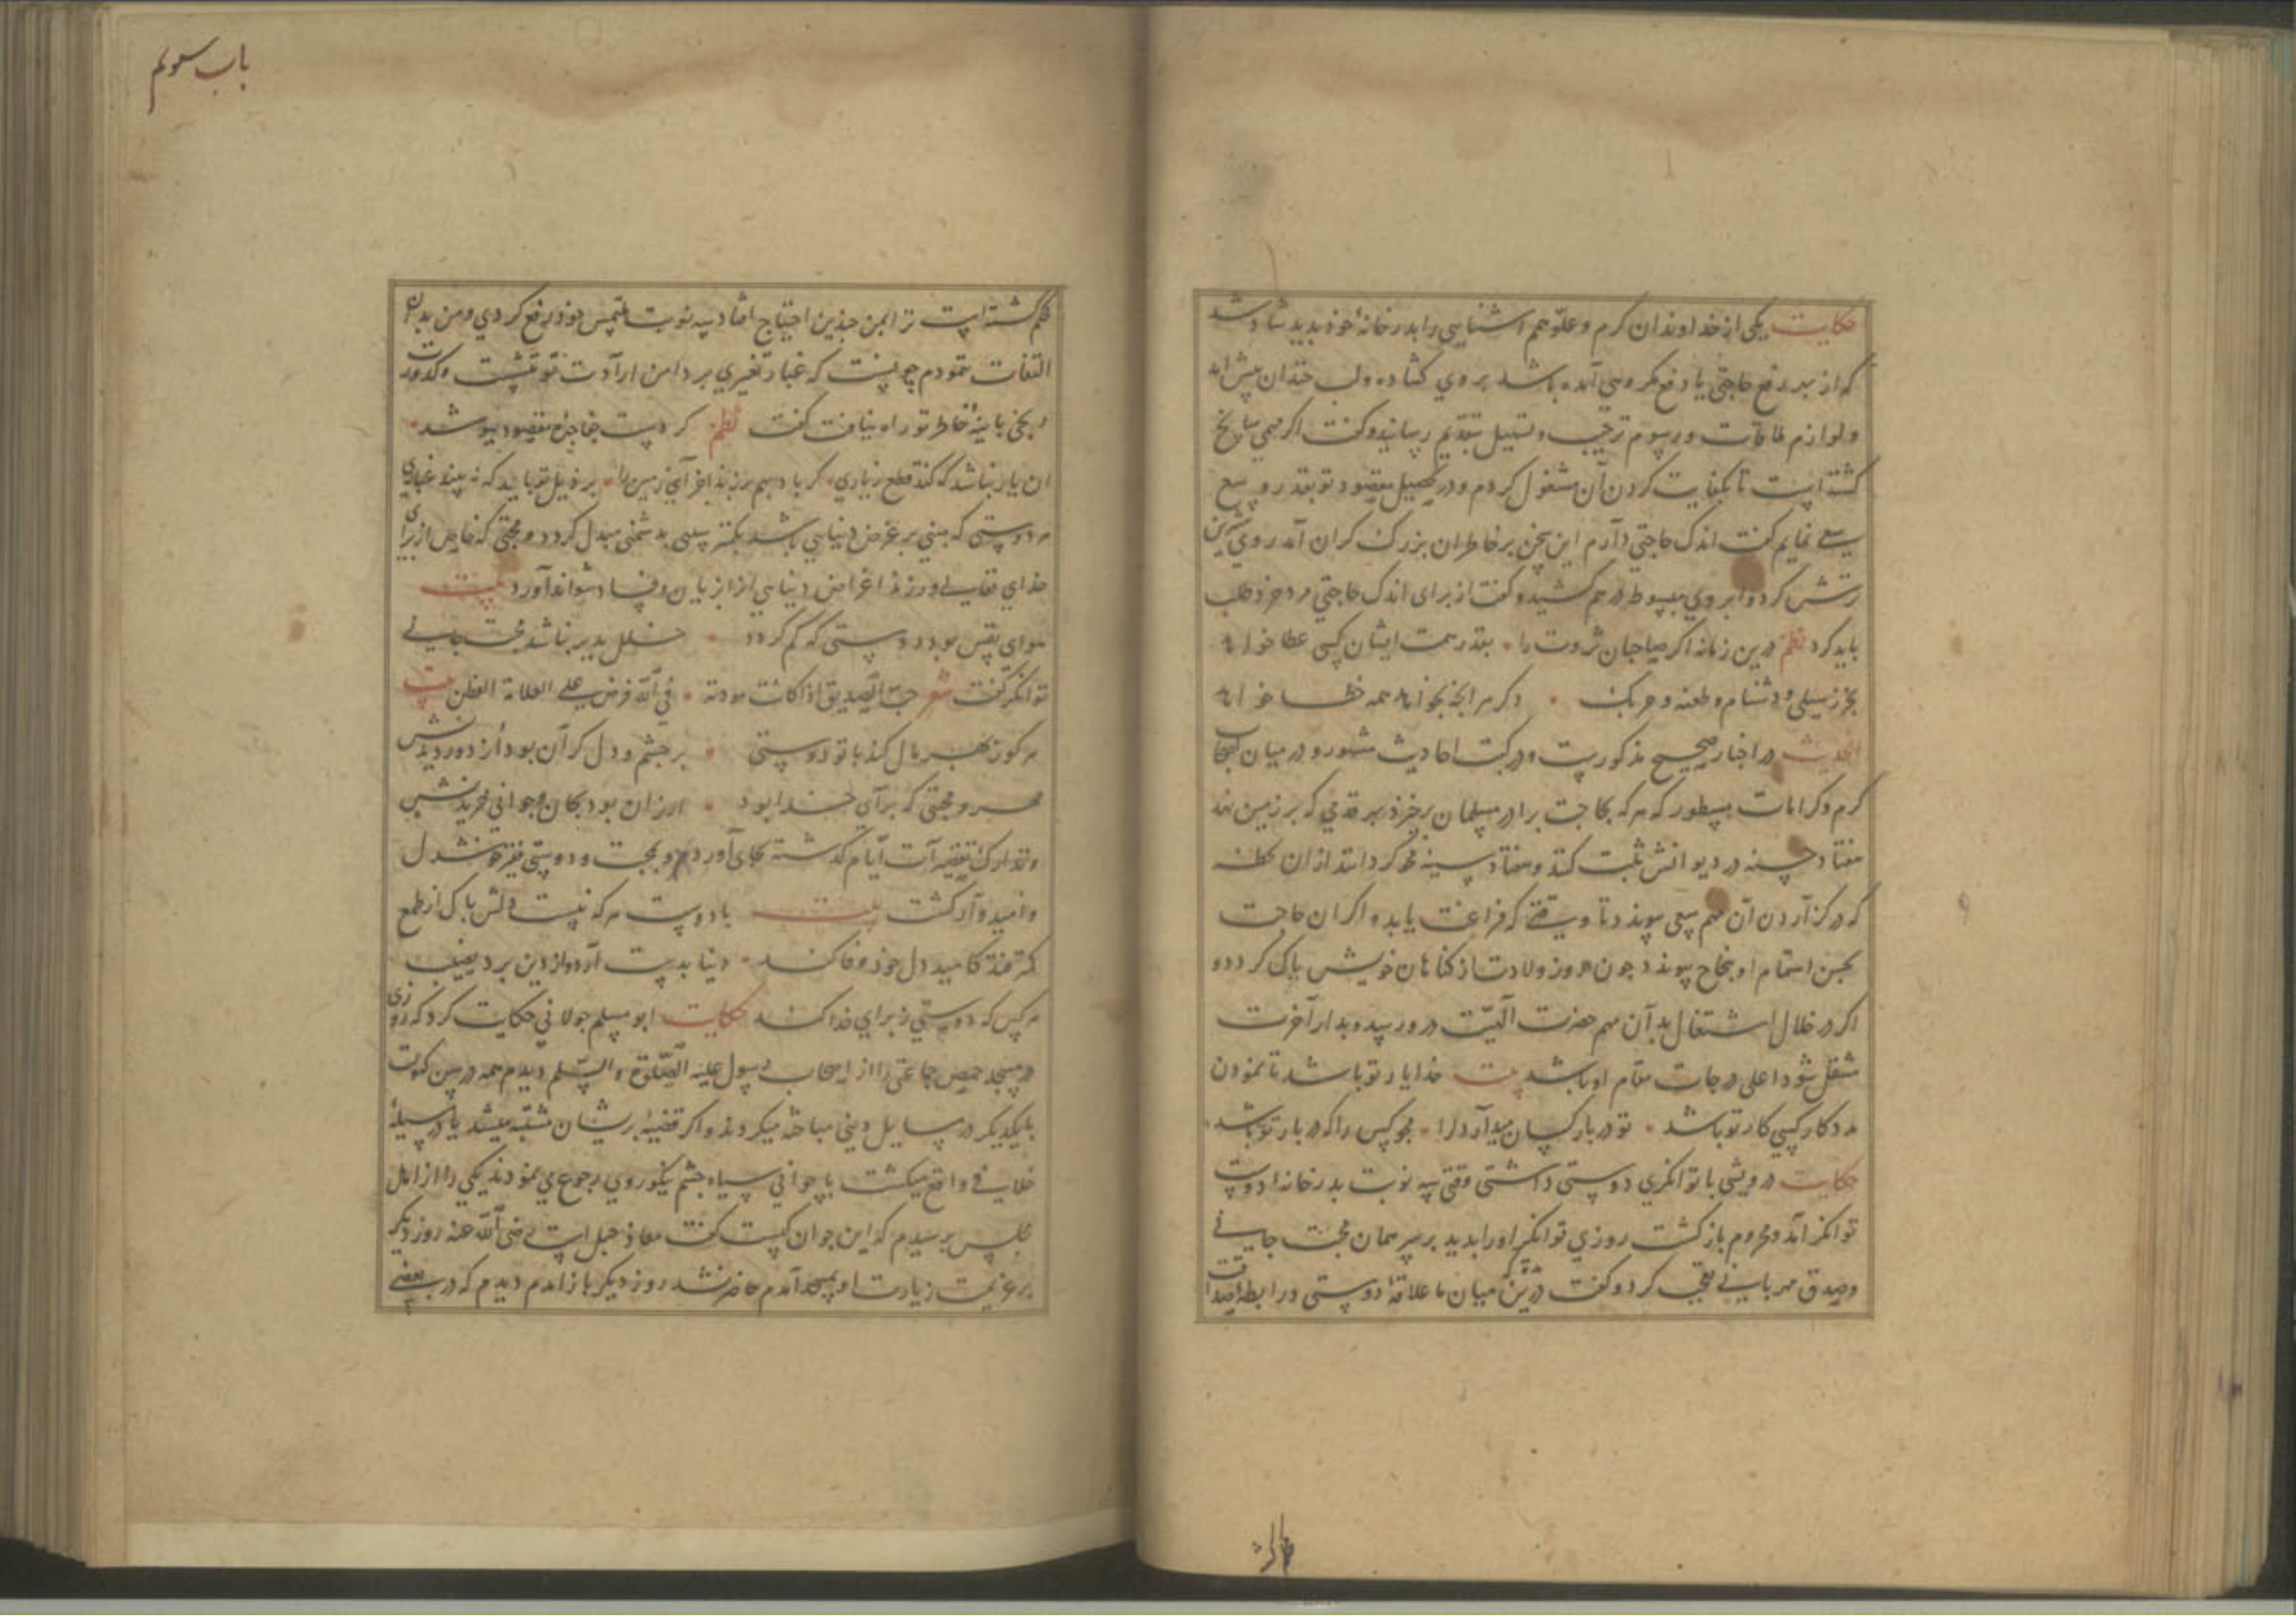 حکایت یکی از خداوندان کرم و علو همم اشنایی را بدر خانهٔ خود بدید شاد شد
که از بهر رفع حاجتی یا دفع مکروهی آمده باشد بروی کشاده و لب خندان پیش امد
و لوازم ملاقات و رسوم ترحیب و تسهیل بتقدیم رسانید و کفت اکر مهمی سانح
کشته است تا بکفایت کردن آن مشغول کردم و در تحصیل مقصود تو بقدر وسع
سعی نمایم کفت اندک حاجتی دارم این سخن بر خاطر ان بزرک کران آمد روی
ترش کرد و ابروی مبسوط درهم کشید و کفت از برای اندک حاجتی مرد خرد طلب
باید کرد نظم درین زمانه اکر صاحبان ثروت را بقدر همت ایشان کسی عطا خواهد
بجز سیلی و دشنام و طعنه و چربک دکر هر آنچه بخواهد همه خطا خواهد
الحدیث در اخبار صحیح مذکورست و در کتب احادیث مشهور و در میان اصحاب
کرم و کرامات مسطور که هر که بحاجت برادر مسلمان برخیزد بهر قدمی که بر زمین نهد
هفتاد حسنه در دیوانش ثبت کنند و هفتاد سیئه محو کردانند از ان لحظه
که در کزاردن آن مهم سعی پیوندد تا وقتی که فراغت یابد و اکر ان حاجت
بحسن اهتمام او بنجاح پیوندد چون روز ولادت از کناهان خویش پاک کردد و
اکر در خلال اشتغال بدآن مهم حضرت الهیت در رسد و بدار آخرت
منتقل شود اعلی درجات مقام او باشد بیت خدا یار تو باشد تا نمودن
مددکار کسی کار تو باشد تو در بار کسان میدار دل را چو کس را که در بار تو باشد
حکایت درویشی با توانکری دوستی داشتی وقتی سه نوبت بدر خانهٔ دوست
توانکر آمد و محروم بازکشت روزی توانکر او را بدید بر سر همان محبت جانی
و صدق مهربانی تعجب کرد و کفت درین میان ما علاقهٔ دوستی و رابطهٔ صداقت
باب سوم
محکم کشته است ترا بمن چندین احتیاج افتاد سه نوبت ملتمس خود رفع کردی و من بدان
التفات ننمودم چونست که غبار تغیری بر دامن ارادت تو ننشست و کدورت
رنجی بآینهٔ خاطر تو راه نیافت کفت نظم کر دست بحاجزی مقصود نپوشد
ان یار نباشد که کند قطع ز یاری کر باد بهم برزند اجزای زمین را بر ذیل تو باید که نبیند غباری
هر دوستی که مبنی بر غرض دنیایی باشد بکمتر سببی بدشمنی مبدل کردد و محبتی که خاص از برای
خدای تعالی ورزند اغراض دنیایی انرا زیان و فساد نتواند آورد بیت
هوای نفس بود دوستی که کم کردد خلل پذیر نباشد محبت جانی
توانکر کفت شعر حب الصدیق اذا کانت مودته فی الله فرض علی العلامة الفطن بیت
هر کو ز بهر مال کند با تو دوستی بر چشم و دل کران بود از دور دیدنش
مهر و محبتی که برای خدا بود ارزان بود بجان و جوانی خریدنش
و تدارک تقصیرات ایام کذشته بجای آورد و بمحبت و دوستی فقیر خوشدل
و امیدوار کشت بیت با دوست هر که نیست دلش پاک از طمع
کمتر فتد که امید دل خود وفا کند دنیا بدست آرد و از دین برد نصیب
هر کس که دوستی ز برای خدا کند حکایت ابو مسلم خولانی حکایت کرد که روزی
در مسجد حمص جماعتی را از اصحاب رسول علیه الصلوة والسلم دیدم همه در سن کهولت
با یکدیکر در مسایل دینی مباحثه میکردند و اکر قضیهٔ بریشان مشتبه میشد یا در مسئلهٔ
خلافی واقع میکشت با جوانی سیاه چشم نیکو روی رجوع می نمودند یکی را از اهل
مجلس پرسیدم که این جوان کیست کفت معاذ جبل است رضی الله عنه روز دیکر
بر عزیمت زیارت او بمسجد آمدم حاضر نشد روز دیکر باز امدم دیدم که در بعضی